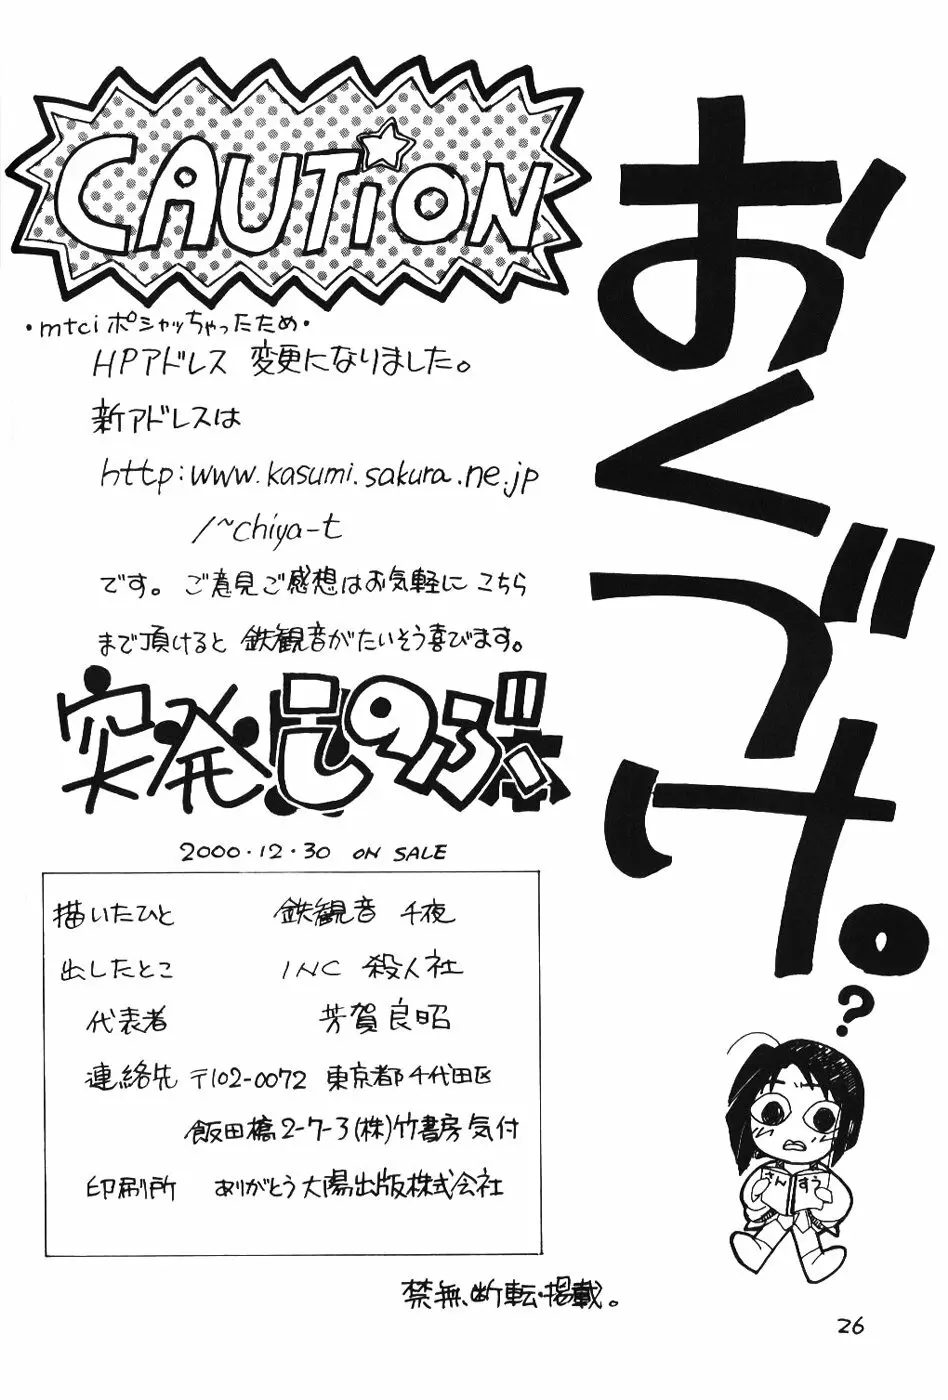 おくづけ。
CAUTION
・mtciポシャッちゃったため・
HPアドレス 変更になりました。
新アドレスは
http:www.kasumi.sakura.ne.jp
/~chiya-t
です。ご意見ご感想はお気軽に こちら
まで頂けると 鉄観音がたいそう喜びます。
突発しのぶ本
2000・12・30 ON SALE
描いたひと 鉄観音 千夜
出したとこ INC 殺人社
代表者 芳賀良昭
連絡先 〒102-0072 東京都千代田区
飯田橋2-7-3(株)竹書房気付
印刷所 ありがとう大陽出版株式会社
禁無、断転・掲載。
?
さんすう
26